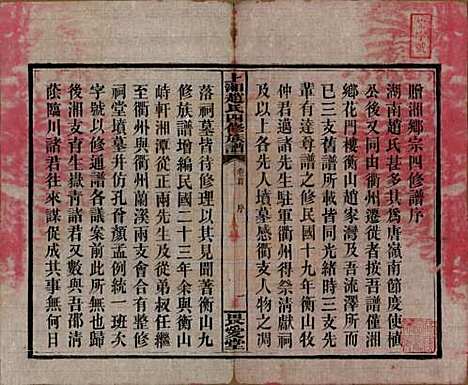 贈湘鄉宗四修譜序
湖南趙氏甚多其爲唐嶺南節度使植
公後又由衢州遷徙者按吾譜僅湘
鄉花門樓衡山趙家灣及吾流澤所而
已三支皆同光緒時三支先
輩有達尊譜之修民國十九年衡山牧
仲君邁諸先生駐軍衢州得祭清獻祠
及以上各先人墳墓感衢支人物之凋
上湘趙氏四修族譜
卷首
序
琴鶴堂
落祠墓皆待修理以其見聞著衡山九
修族譜增編民國二十三年余與衡山
峙軒湘潭從正兩先生及從弟叔任繼
至衢州與衢州蘭溪兩支會合並整修
祠堂墳墓并仿孔曾顏孟例統一班次
字號以修通譜各議案前年
湘支青生淸諸君又數與吾邵淸
蔭臨川諸君往來謀促成其事無何日